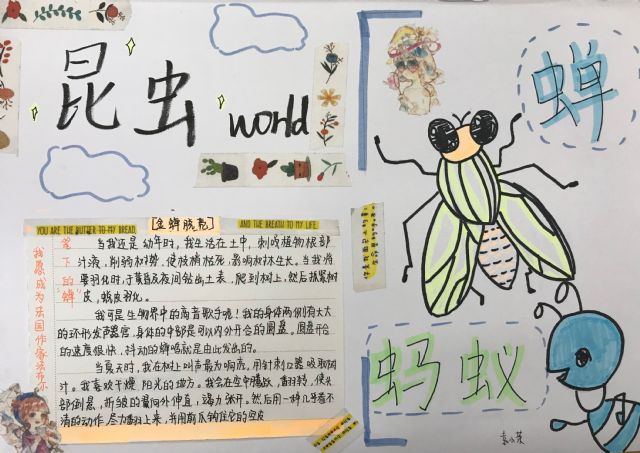 昆虫 world
蝉
YOU ARE THE BUTTER TO MY BREAD,
[金蝉脱壳]
AND THE BREATH TO MY LIFE
笔下的蝉”
当我还是幼年时，我生活在土中，刺吸植物根部
汁液，削弱树势，使枝梢枯死，影响树木生长。当我将
要羽化时，于黄昏及夜间钻出土表，爬到树上，然后抓紧树
皮，蜕皮羽化。
我可是生物界中的高音歌手呢！我的身体两侧有大大
的环形发声器官，身体的中部是可以内外开合的圆盘。圆盘开合
的速度很快，抖动的蝉鸣就是由此发出的。
当夏天时，我在树上叫声最为响亮，用针刺口器吸取树
汁。我喜欢干燥、阳光的地方。我会在空中腾跃，翻转，使头
部倒悬，折皱的翼向外伸直，竭力张开。然后用一种几乎看不
清的动作，尽力翻上来，并用前爪钩住它的空皮
蚂蚁